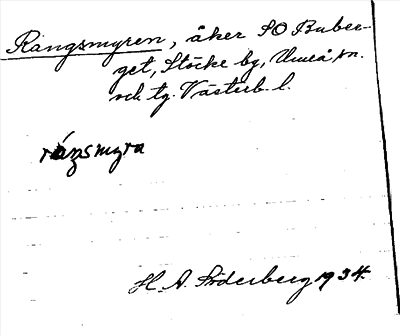 Rångsmyren, åker SO Buber-
get, Stöcke by, Umeå sn.
och tg. Västerb. l.
rángsmyra
H. A. Söderberg 1934.